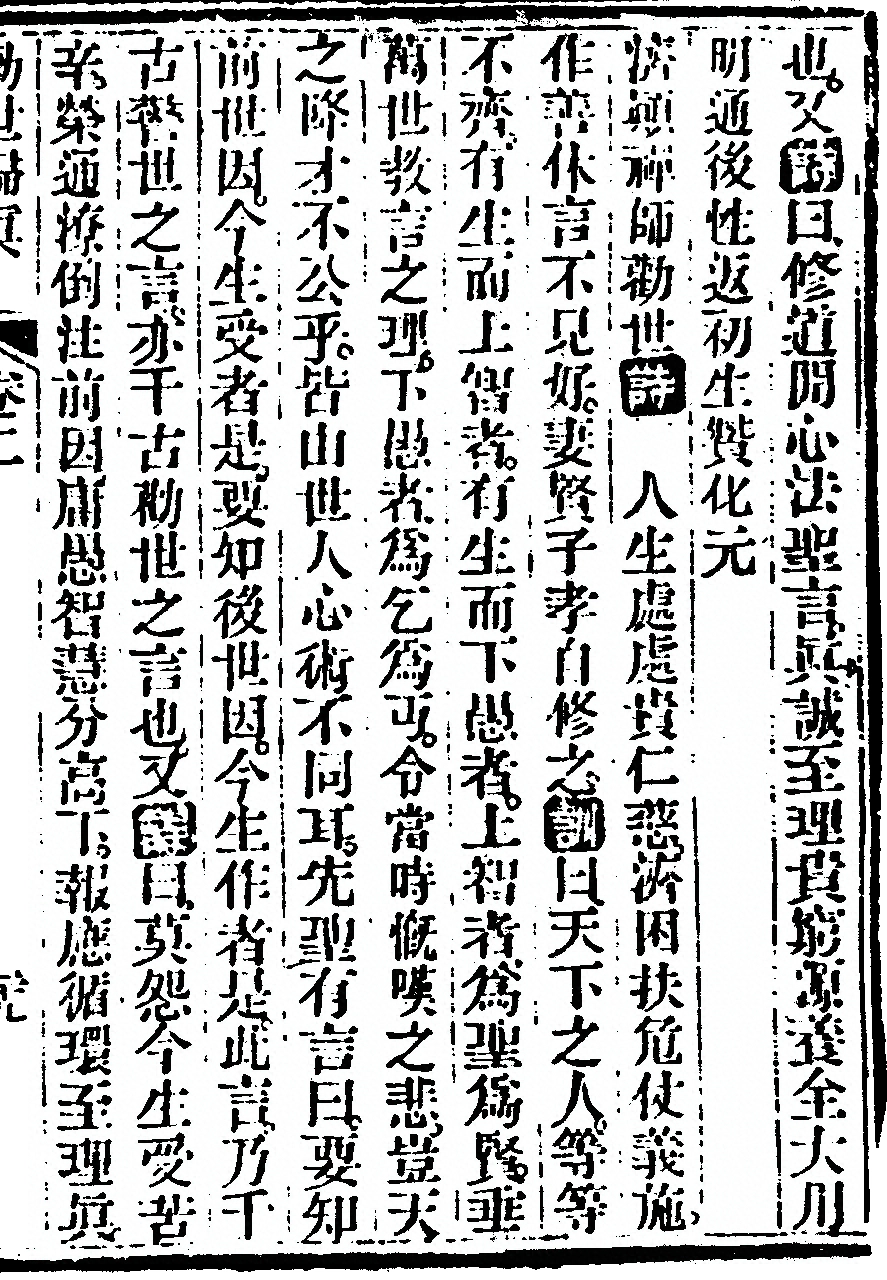 也又詩曰修道開心法聖言眞誠至理貴窮源養全大用
明通後性返初生贊化元
濟顚禪師勸世詩　人生處處貴仁慈濟困扶危仗義施
作善休言不見好妻賢子孝自修之訓曰天下之人等等
不齊有生而上智者有生而下愚者上智者爲聖爲賢垂
萬世教言之理下愚者爲乞爲丐令當時慨嘆之悲豈天
之降才不公乎皆由世人心術不同耳先聖有言曰要知
前世因今生受者是要知後世因今生作者是此言乃千
古警世之言亦千古勸世之言也又詩曰莫怨今生受苦
辛榮通潦倒注前因庸愚智慧分高下報應循環至理眞
勸世歸眞　卷二